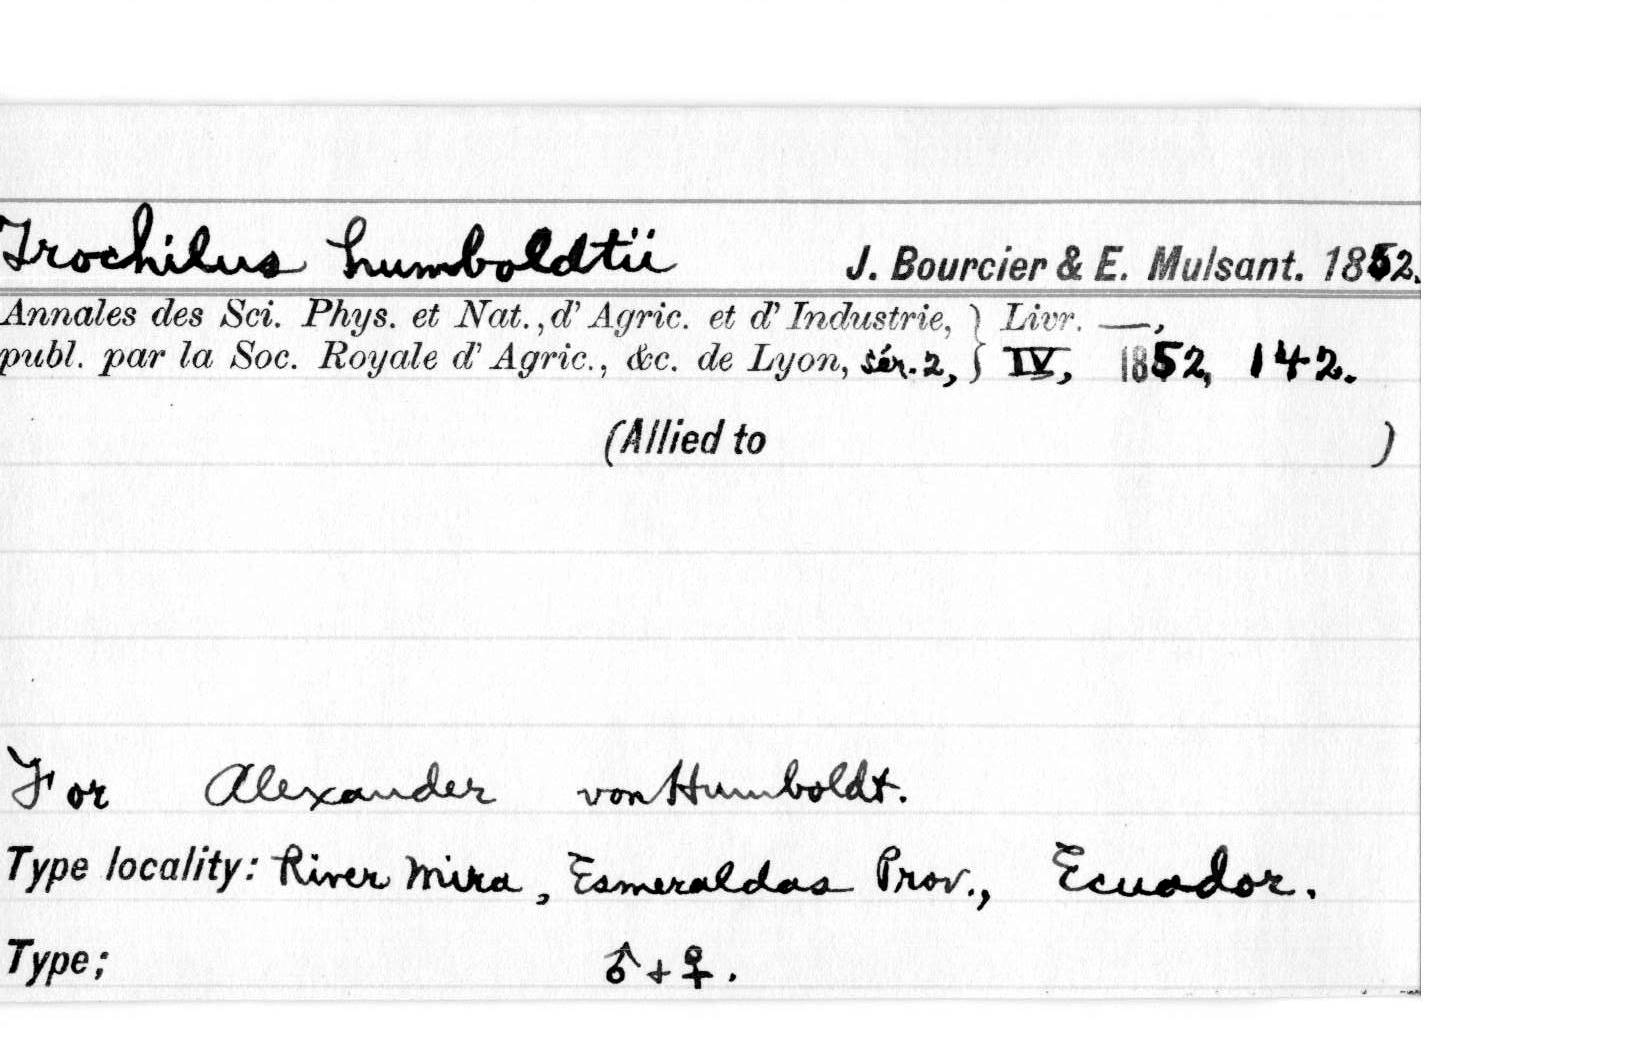 Trochilus humboldtii J. Bourcier & E. Mulsant. 1852.
Annales des Sci. Phys. et Nat., d' Agric. et d' Industrie, } Livr. —,
publ. par la Soc. Royale d' Agric., &c. de Lyon, sér. 2, } IV, 1852, 142.
(Allied to )
For Alexander von Humboldt.
Type locality: River Mira, Esmeraldas Prov., Ecuador.
Type; ♂ + ♀.